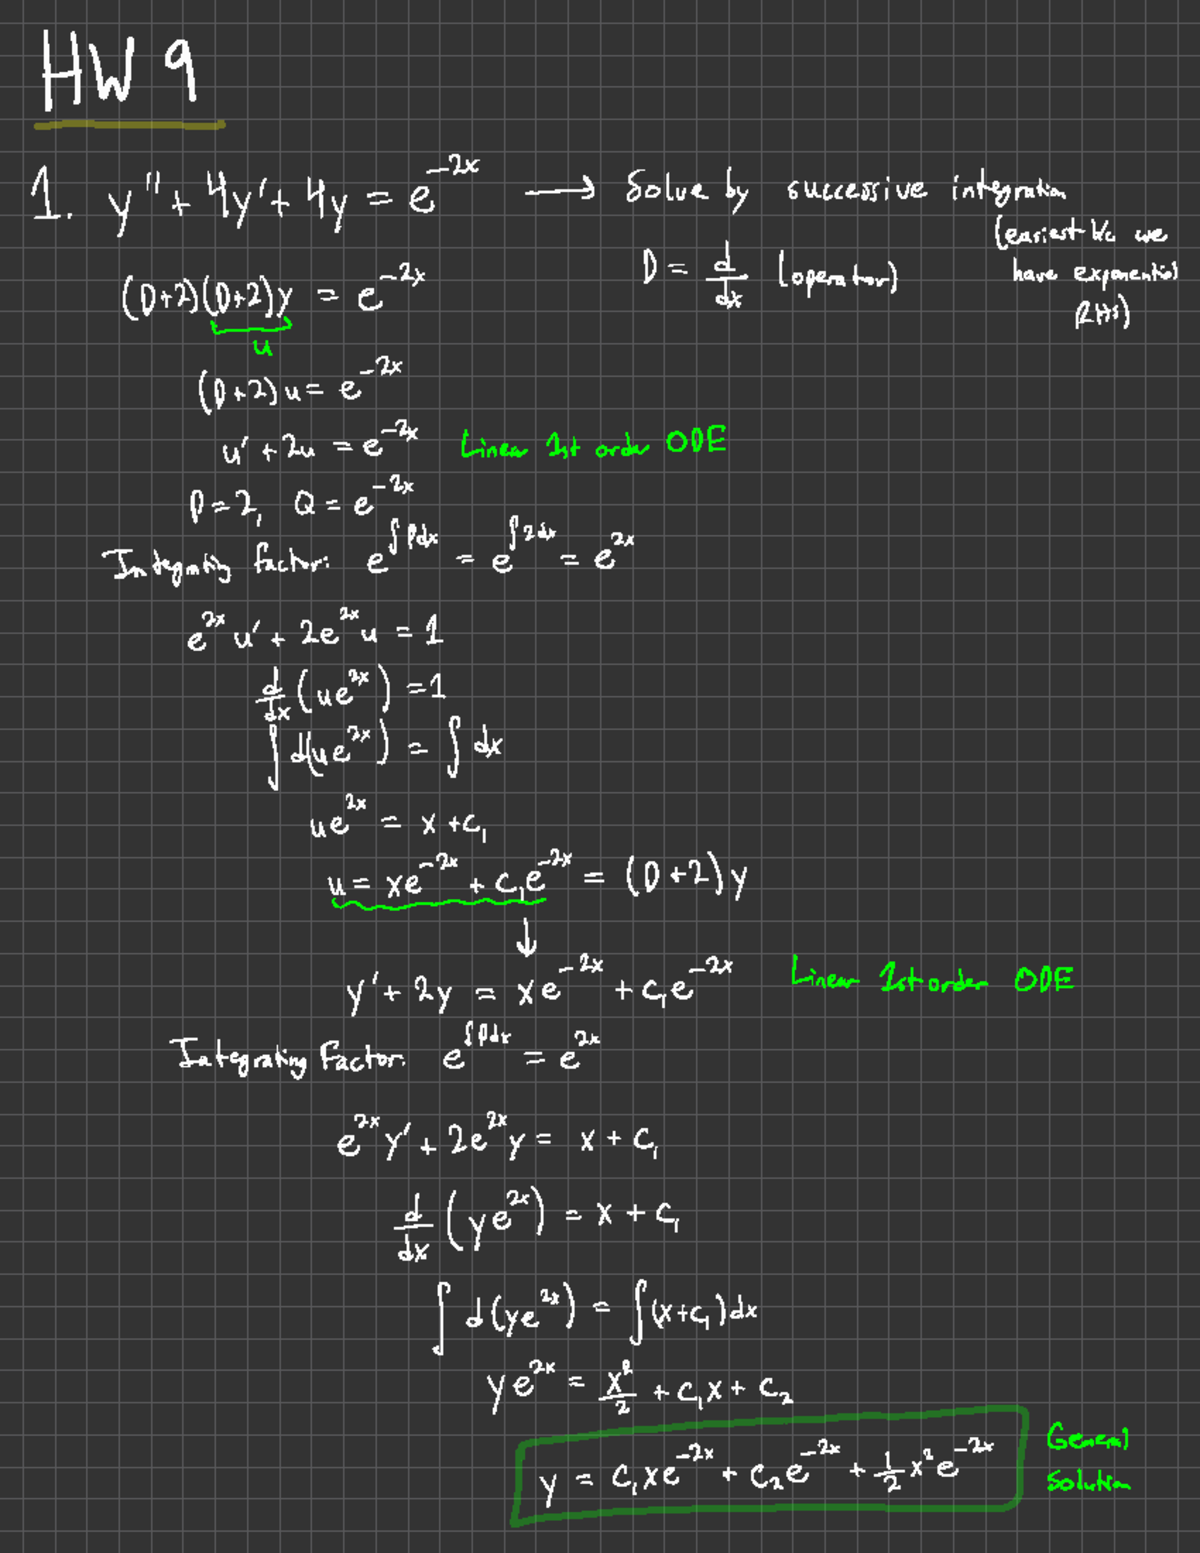 HW 9
1. y'' + 4y' + 4y = e^{-2x} → Solve by successive integration
(easiest b/c we
have exponential
RHS)
D = d/dx (operator)
(D+2)(D+2)y = e^{-2x}
u
(D+2)u = e^{-2x}
u' + 2u = e^{-2x} Linear 1st order ODE
P = 2, Q = e^{-2x}
Integrating factor: e^{∫Pdx} = e^{∫2dx} = e^{2x}
e^{2x}u' + 2e^{2x}u = 1
d/dx (ue^{2x}) = 1
∫d(ue^{2x}) = ∫dx
ue^{2x} = x + c₁
u = xe^{-2x} + c₁e^{-2x} = (D+2)y
↓
y' + 2y = xe^{-2x} + c₁e^{-2x} Linear 1st order ODE
Integrating Factor: e^{∫Pdx} = e^{2x}
e^{2x}y' + 2e^{2x}y = x + c₁
d/dx (ye^{2x}) = x + c₁
∫d(ye^{2x}) = ∫(x+c₁)dx
ye^{2x} = x²/2 + c₁x + c₂
y = c₁xe^{-2x} + c₂e^{-2x} + 1/2 x²e^{-2x}
General
Solution